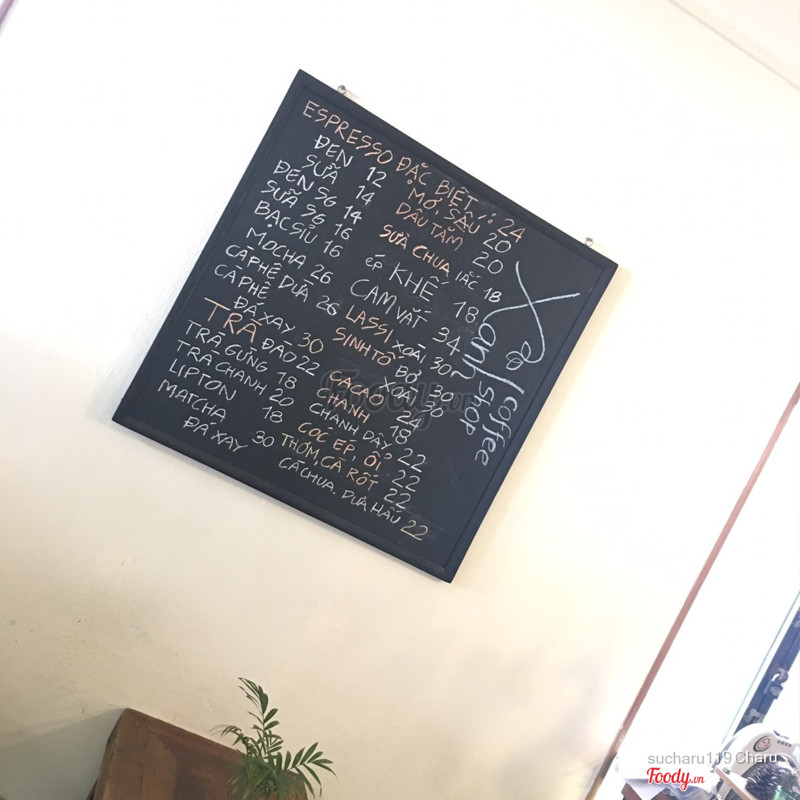 ESPRESSO ĐẶC BIỆT: 24
ĐEN 12
SỮA 14
ĐEN SG 14
SỮA SG 16
BẠC SỈU 16
MOCHA 26
CÀ PHÊ DỪA 26
CÀ PHÊ
ĐÁ XAY 30
TRÀ ĐÀO 22
TRÀ GỪNG 18
TRÀ CHANH 20
LIPTON 18
MATCHA
ĐÁ XAY 30
MƠ, SẤU 20
DÂU TẰM 20
SỮA CHUA LẮC 18
ÉP KHẾ 18
CAM VẮT 34
LASSI XOÀI 30
SINH TỐ BƠ 30
XOÀI 30
CACAO 24
CHANH 18
CHANH DÂY 22
CÓC ÉP, ỔI 22
THƠM, CÀ RỐT 22
CÀ CHUA, DƯA HẤU 22
Xanh
coffee
shop
Foody.vn
sucharu119 Charu
Foody.vn